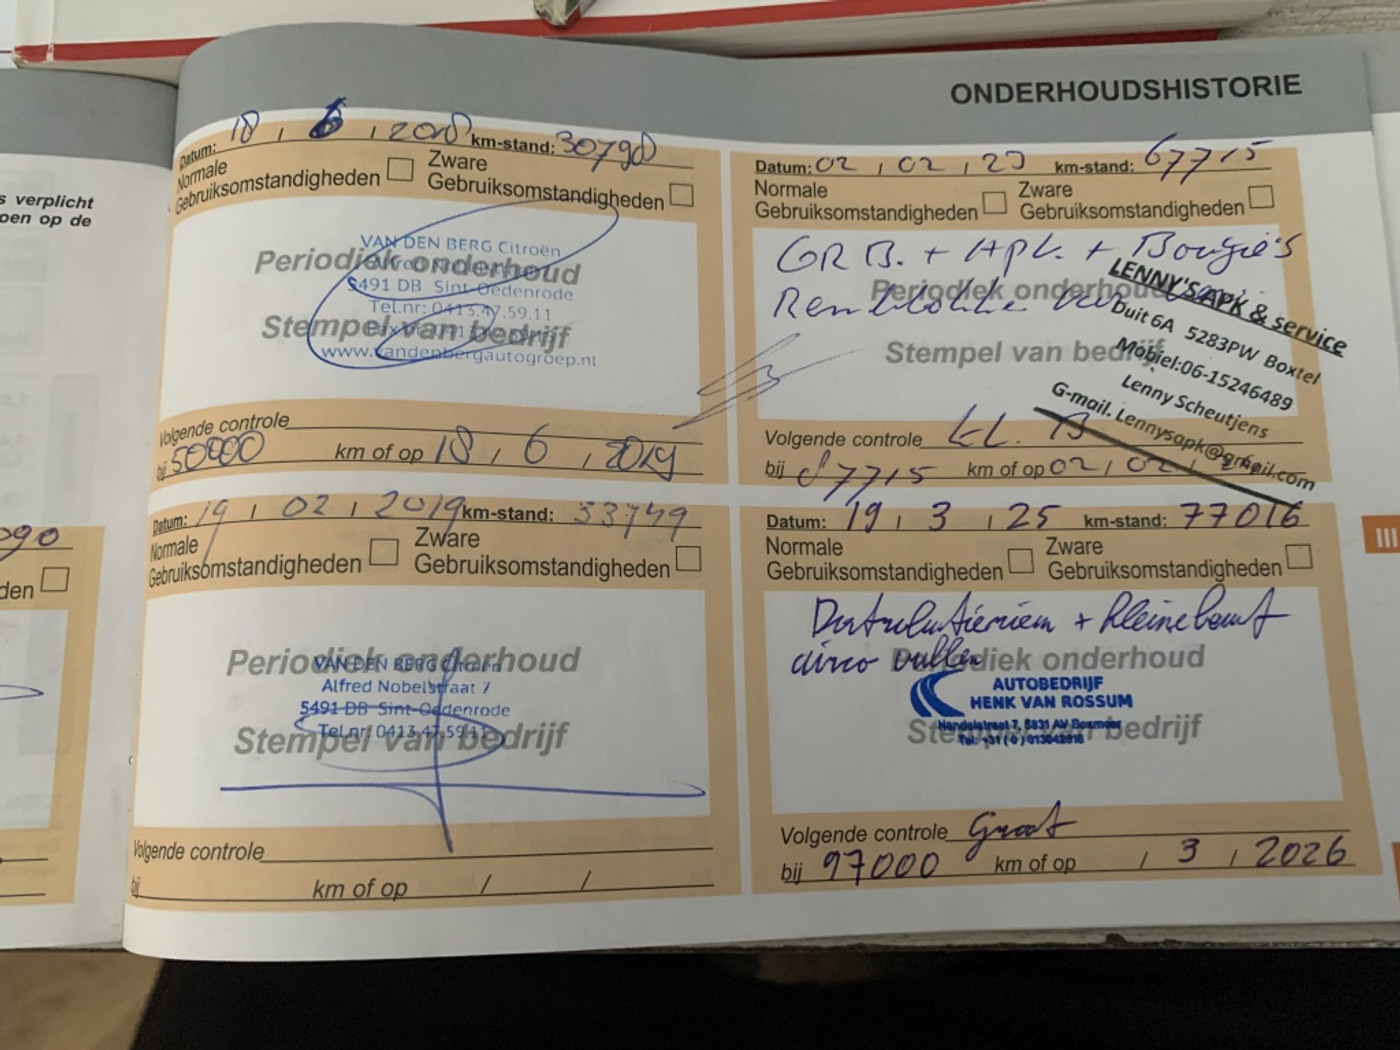 ONDERHOUDSHISTORIE
s verplicht
oen op de
90
den
Datum: 18 / 6 / 2018 km-stand: 30790
Normale Gebruiksomstandigheden
Zware Gebruiksomstandigheden
Periodiek onderhoud
Stempel van bedrijf
VAN DEN BERG Citroën
5491 DB Sint-Oedenrode
Tel.nr: 0413.47.59.11
www.vandenbergautogroep.nl
Volgende controle
bij 50000 km of op 18 / 6 / 2019
Datum: 19 / 02 / 2019 km-stand: 33749
Normale Gebruiksomstandigheden
Zware Gebruiksomstandigheden
Periodiek onderhoud
Stempel van bedrijf
VAN DEN BERG Citroën
Alfred Nobelstraat 7
5491 DB Sint-Oedenrode
Tel.nr: 0413.47.59.11
Volgende controle
bij km of op / /
Datum: 02 / 02 / 23 km-stand: 67715
Normale Gebruiksomstandigheden
Zware Gebruiksomstandigheden
GR B. + APK + Bougie's
Remblokke
Periodiek onderhoud
Stempel van bedrijf
LENNY'S APK & service
Duit 6A 5283PW Boxtel
Mobiel:06-15246489
Lenny Scheutjens
G-mail. Lennysapk@gmail.com
Volgende controle kl. B
bij 87715 km of op 02 / 02 /
Datum: 19 / 3 / 25 km-stand: 77016
Normale Gebruiksomstandigheden
Zware Gebruiksomstandigheden
Distributieriem + kleine beurt
airco vullen
Periodiek onderhoud
Stempel van bedrijf
AUTOBEDRIJF
HENK VAN ROSSUM
Handelstraat 7, 5831 AV Boxmeer
Volgende controle Groot
bij 97000 km of op / 3 / 2026
III